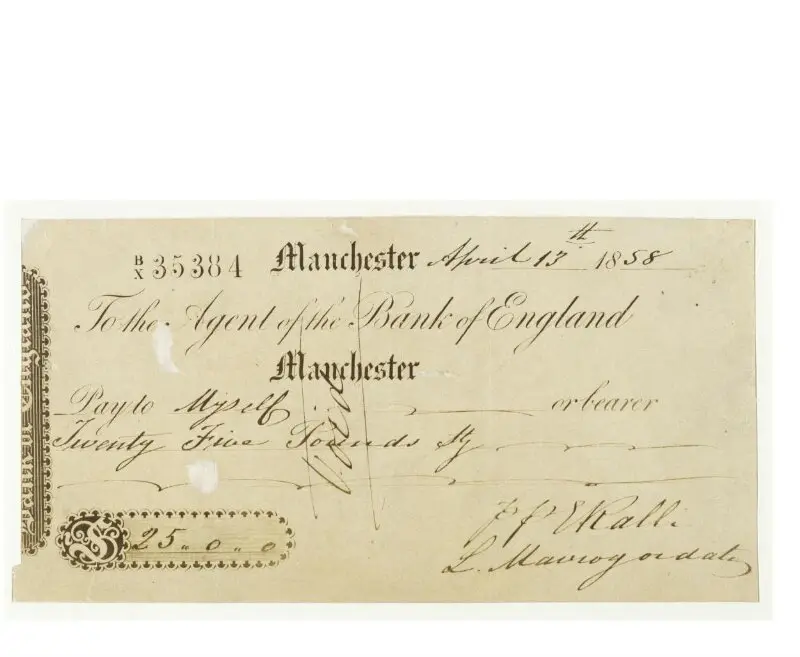 B/X 35384 Manchester April 13th 1858
To the Agent of the Bank of England
Manchester
Pay to Myself or bearer
Twenty Five Pounds Stg
Void
£ 25 " 0 " 0
pp E Ralli
L. Mavrogordato